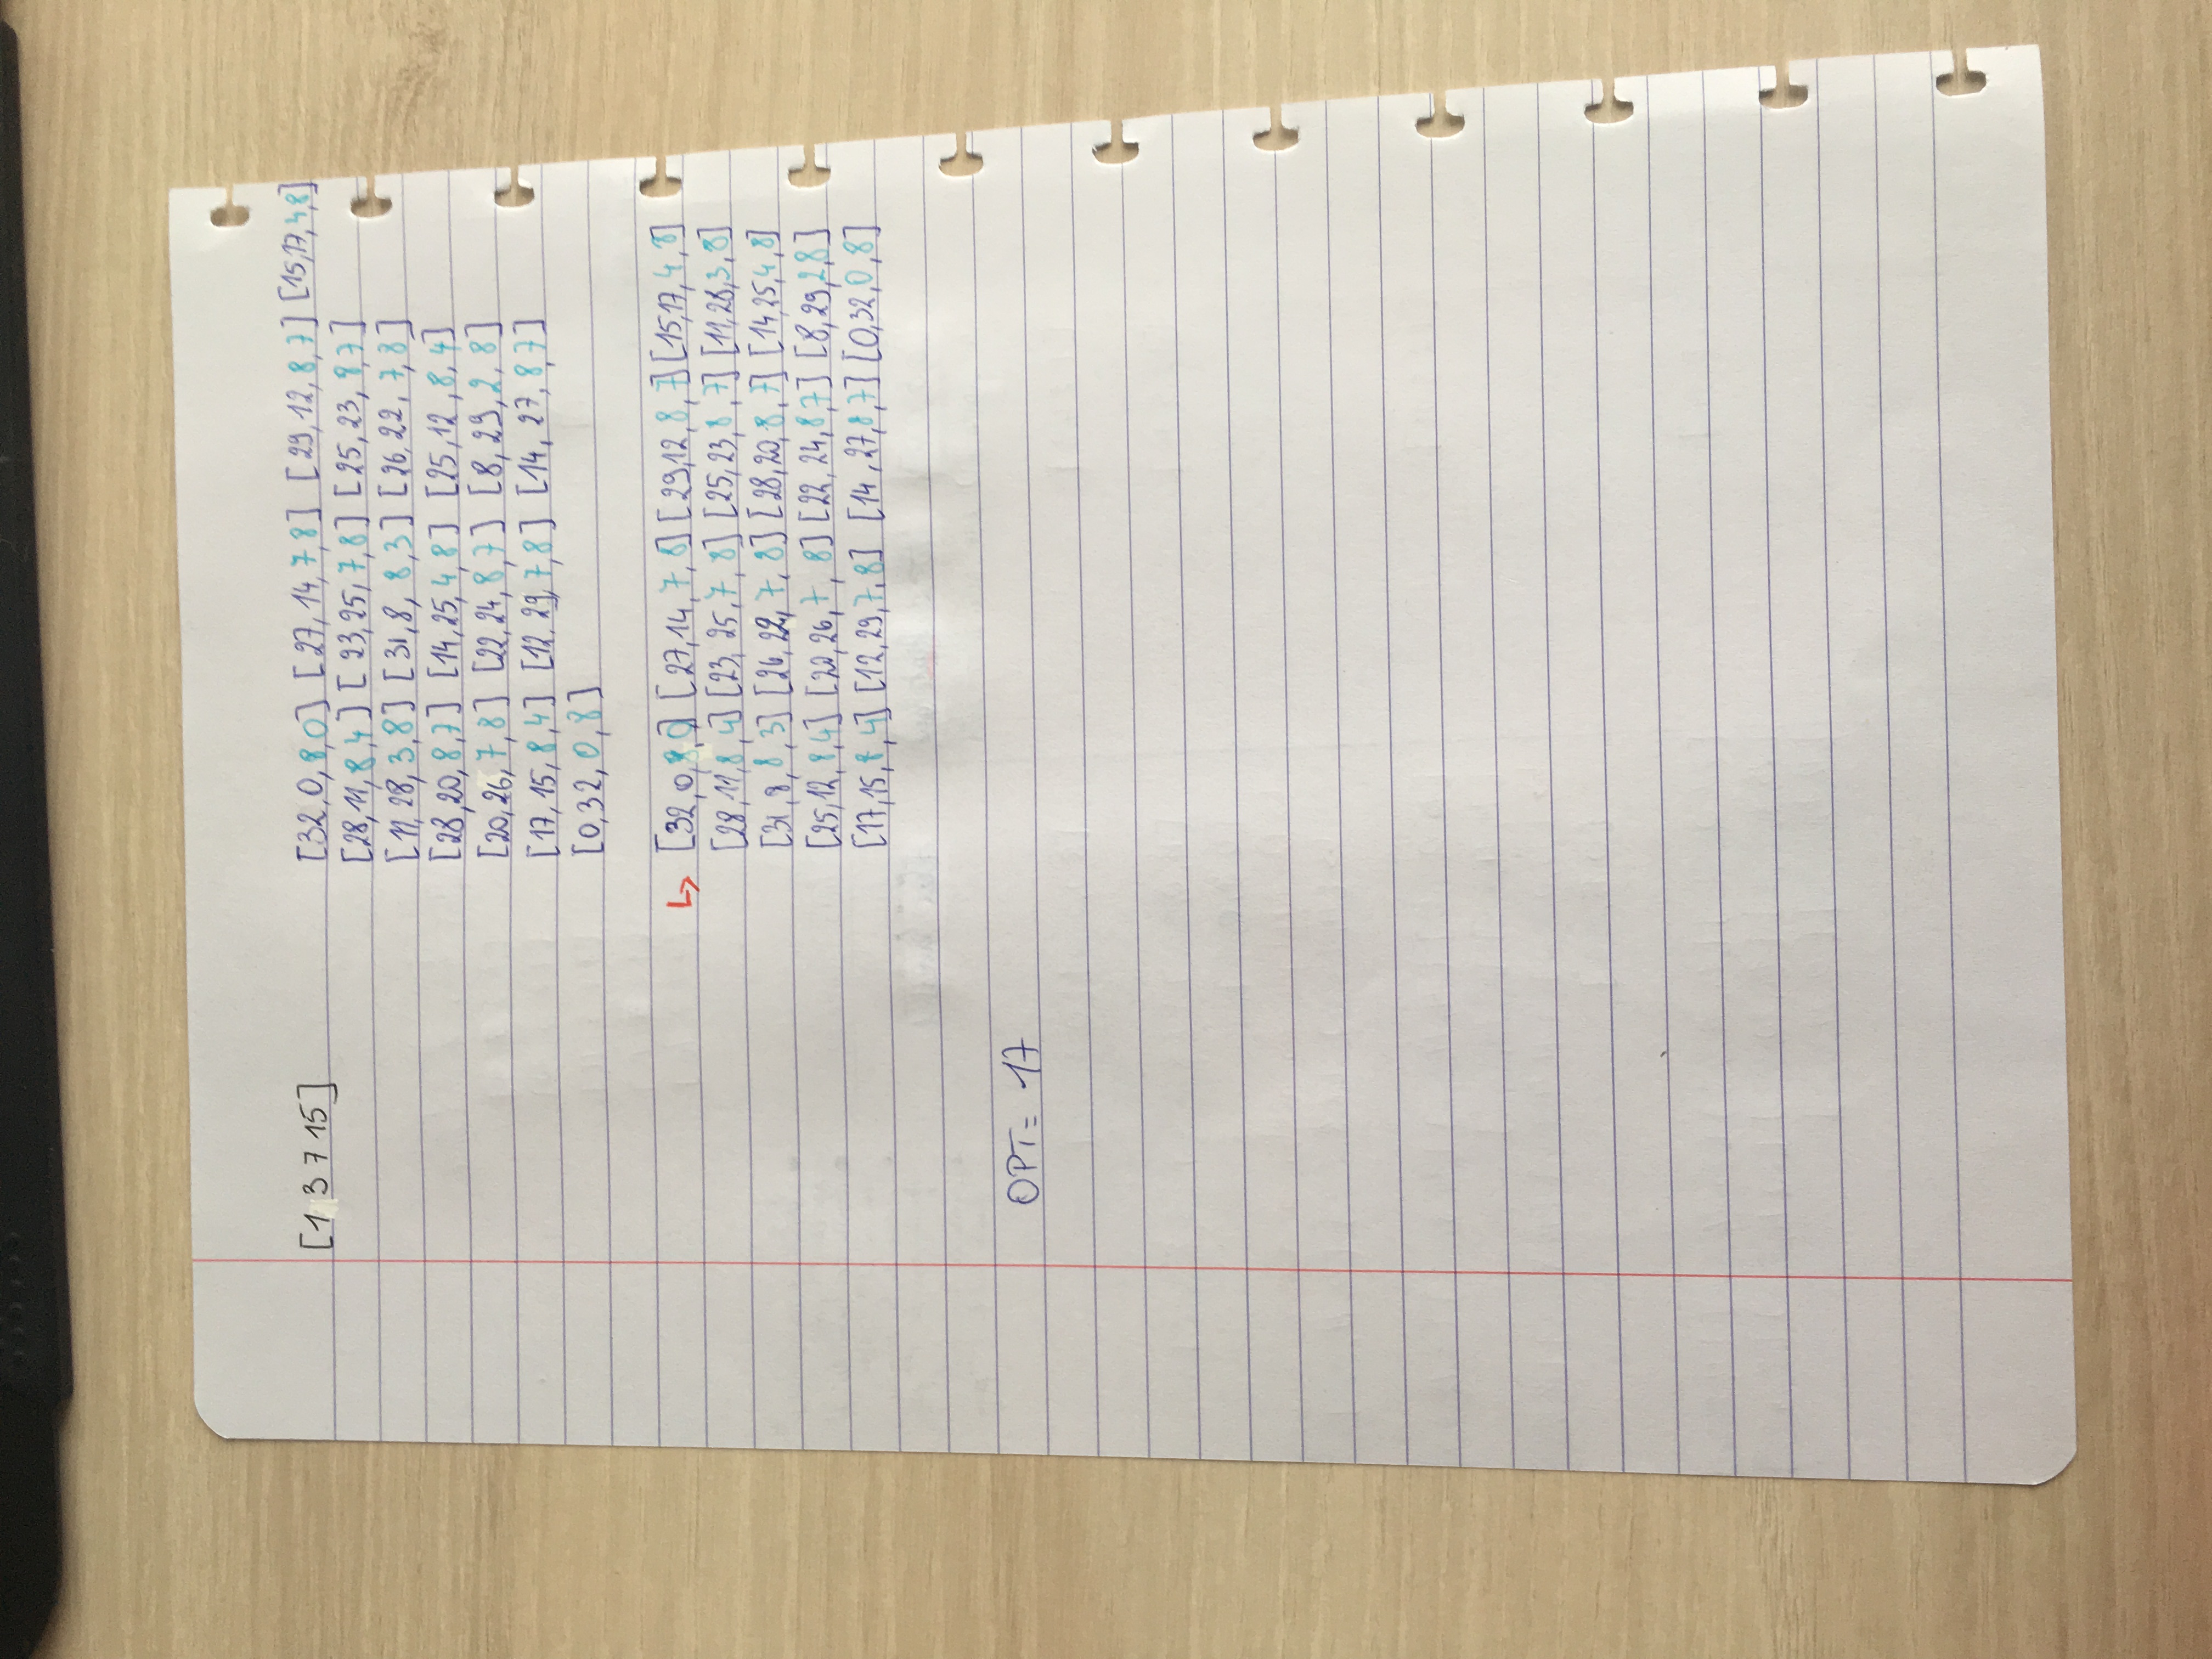 [1 3 7 15] [32,0,8,0] [27,14,7,8] [29,12,8,7] [15,17,4,8]
[28,11,8,4] [23,25,7,8] [25,23,8,7]
[11,28,3,8] [31,8,8,3] [26,22,7,8]
[28,20,8,7] [14,25,4,8] [25,12,8,4]
[20,26,7,8] [22,24,8,7] [8,29,2,8]
[17,15,8,4] [12,29,7,8] [14,27,8,7]
[0,32,0,8]
↳ [32,0,8,0] [27,14,7,8] [29,12,8,7] [15,17,4,8]
[28,11,8,4] [23,25,7,8] [25,23,8,7] [11,28,3,8]
[31,8,8,3] [26,22,7,8] [28,20,8,7] [14,25,4,8]
[25,12,8,4] [20,26,7,8] [22,24,8,7] [8,29,2,8]
[17,15,8,4] [12,29,7,8] [14,27,8,7] [0,32,0,8]
OPT= 17